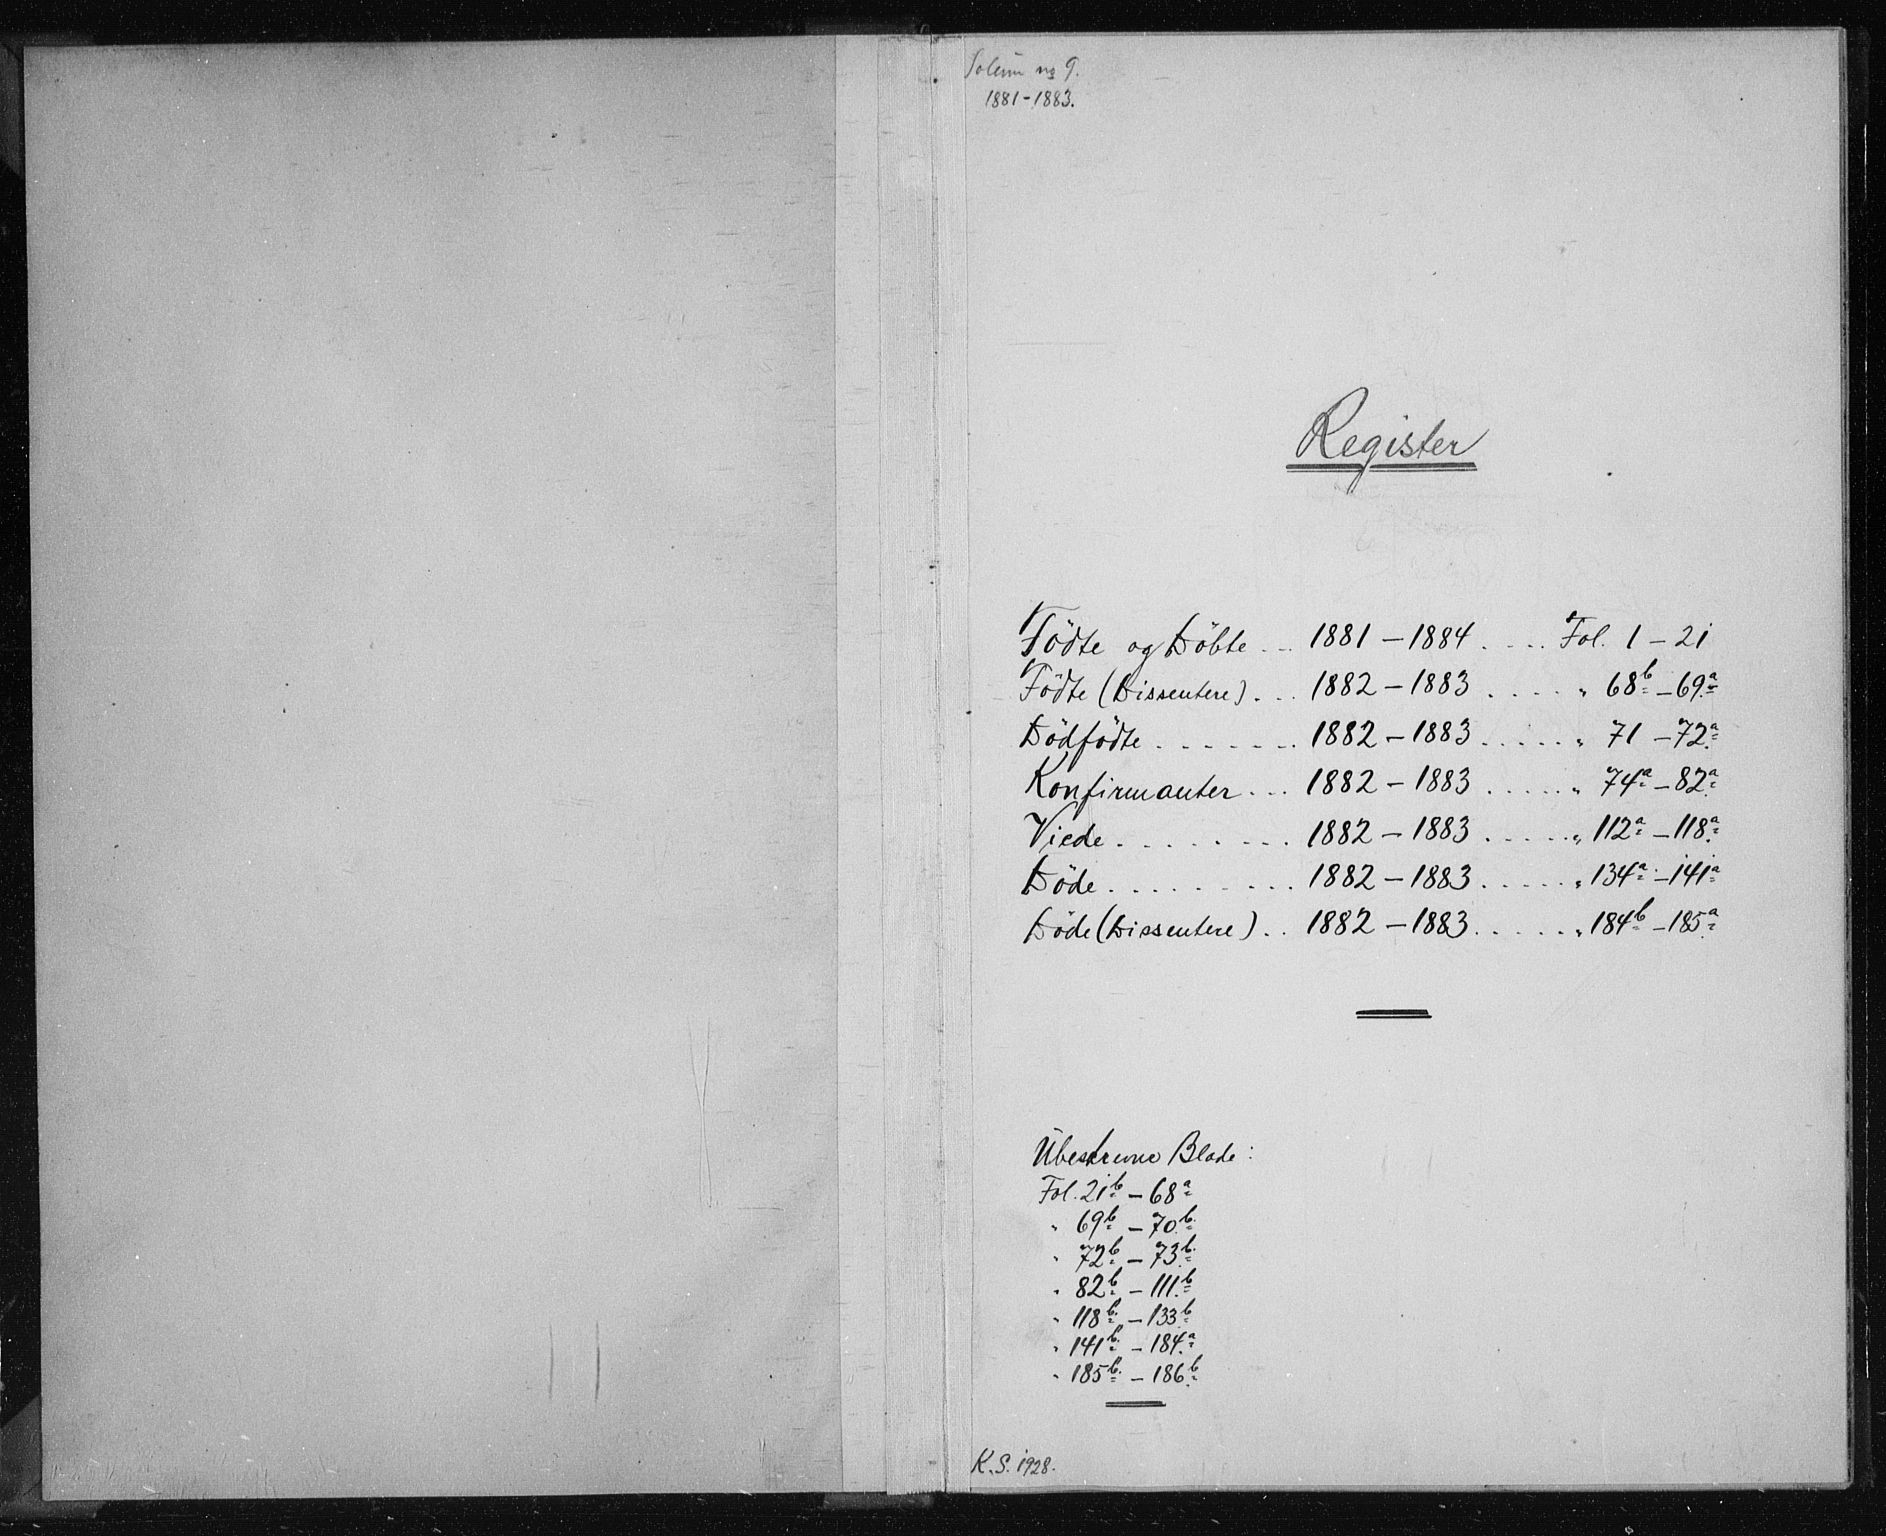 Solum no 9.
1881-1883.
Register
Födte og Döbte ... 1881 - 1884 .... Fol. 1 - 21
Födte (Dissentere) ... 1882 - 1883 ..... " 68b - 69a
Dödfödte ....... 1882 - 1883 ..... " 71 - 72a
Konfirmanter ... 1882 - 1883 ..... " 74a - 82a
Viede ........ 1882 - 1883 ..... " 112a - 118a
Döde ......... 1882 - 1883 ..... " 134a - 141a
Döde (Dissentere) .. 1882 - 1883 ...... " 184b - 185a
Ubeskrevne Blade:
Fol. 21b - 68a
" 69b - 70b
" 72b - 73b
" 82b - 111b
" 118b - 133b
" 141b - 184a
" 185b - 186b
K.S. 1928.